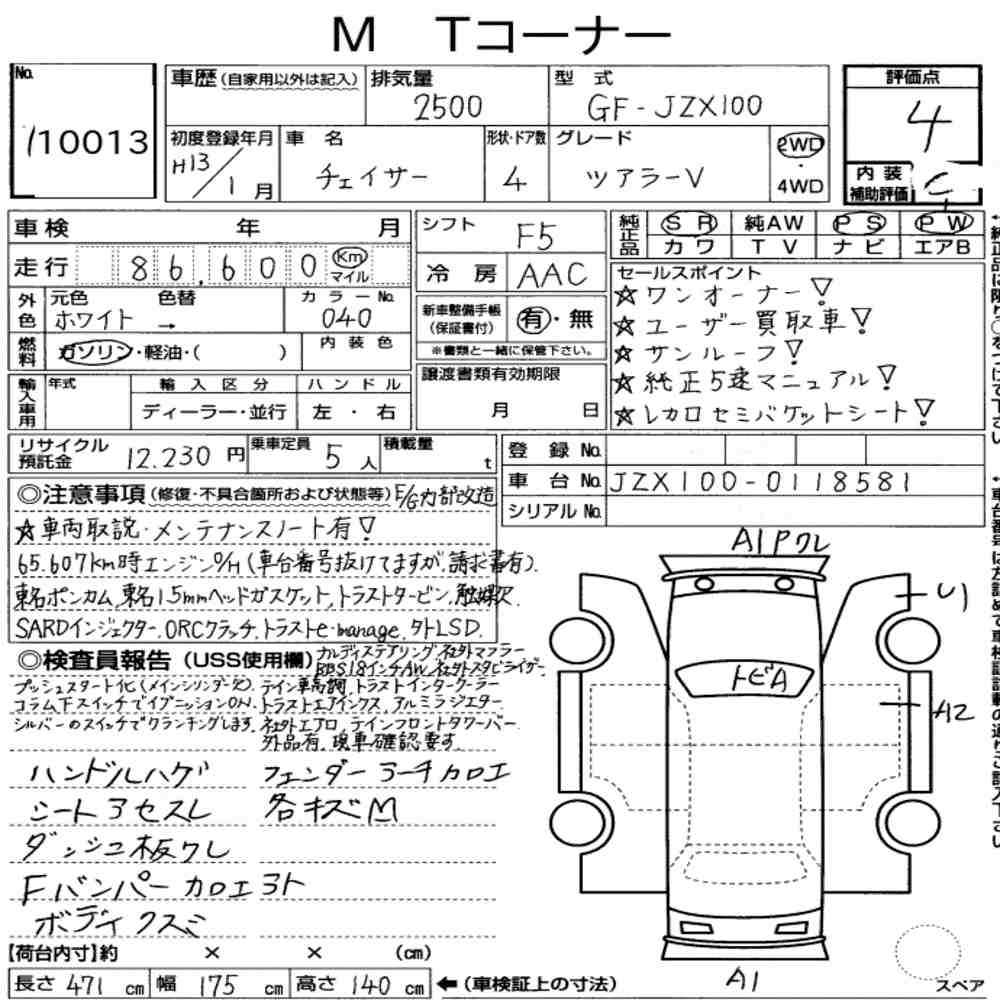 M Tコーナー
No.
110013
車歴(自家用以外は記入)
排気量
2500
型式
GF-JZX100
評価点
4
初度登録年月
H13/1月
車名
チェイサー
形状・ドア数
4
グレード
ツアラーV
2WD
・
4WD
内装
補助評価
C
車検 年 月
走行 86,600 Km
マイル
外色
元色 色替
ホワイト →
カラーNo.
040
燃料
ガソリン・軽油・( )
内装色
輸入車用
年式
輸入区分
ディーラー・並行
ハンドル
左・右
シフト
F5
冷房 AAC
新車整備手帳
(保証書付)
有・無
※書類と一緒に保管下さい。
譲渡書類有効期限
月 日
純正品
SR 純AW PS PW
カワ TV ナビ エアB
セールスポイント
☆ワンオーナー!
☆ユーザー買取車!
☆サンルーフ!
☆純正5速マニュアル!
☆レカロセミバケットシート!
リサイクル
預託金
12.230円
乗車定員
5人
積載量
t
登録No.
車台No. JZX100-0118581
シリアルNo.
◎注意事項(修復・不具合箇所および状態等)E/G内部改造
☆車両取説・メンテナンスノート有!
65.607km時エンジンO/H(車台番号抜けてますが、請求書有).
東名ポンカム、東名1.5mmヘッドガスケット、トラストタービン、触媒欠
SARDインジェクター、ORCクラッチ、トラストe-manage、タトLSD.
◎検査員報告(USS使用欄)
カルディステアリング、社外マフラー
BBS18インチAW、社外スタビライザー
プッシュスタート化(メインシリンダー欠)、テイン車高調、トラストインタークーラー
コラム下スイッチでイグニッションON、トラストエアインクス、アルミラジエター
シルバーのスイッチでクランキングします。社外エアロ、テインフロントタワーバー
外品有、現車確認要す.
ハンドルハゲ フェンダーアーチカロエ
シートアセスレ 各キズM
ダッシュ板ワレ
Fバンパーカロエヨト
ボディクスミ
A1Pワレ
U1
トビA
A2
A1
スペア
【荷台内寸】約 × × (cm)
長さ 471 cm 幅 175 cm 高さ 140 cm ←(車検証上の寸法)